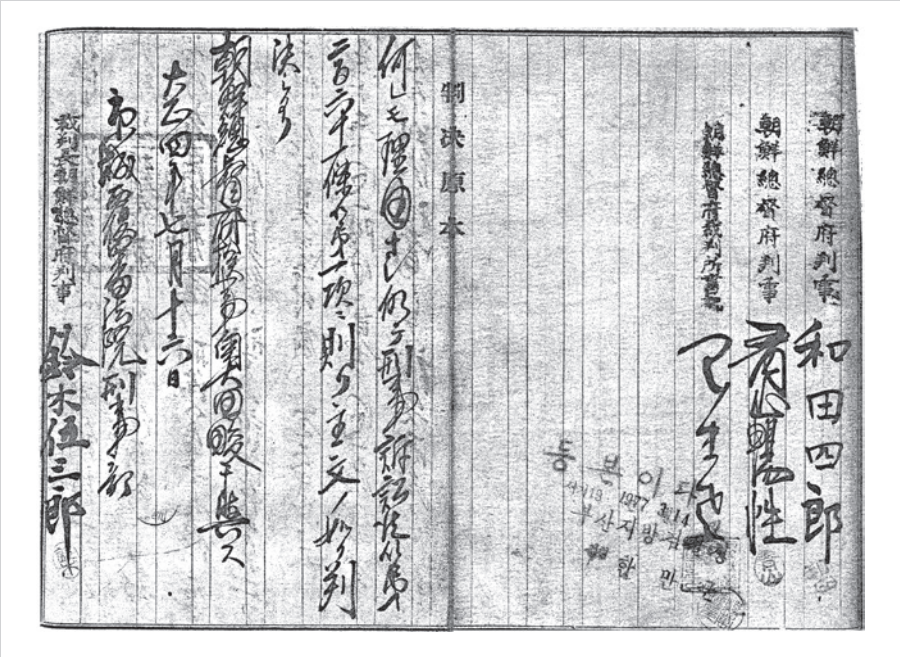 朝鮮總督府判事 和田四郎
朝鮮總督府判事 青山暢性
朝鮮總督府裁判所書記
등본이다
1977 3 14
부산지방검찰청
判決原本
何レモ理由ナシ仍テ刑事訴訟法第
二百六十一條第一項ニ則リ主文ノ如ク判
決ス
朝鮮總督府檢事奥田畯干與ス
大正四年七月十六日
大邱覆審法院刑事部
裁判長朝鮮總督府判事 鈴木伍三郎